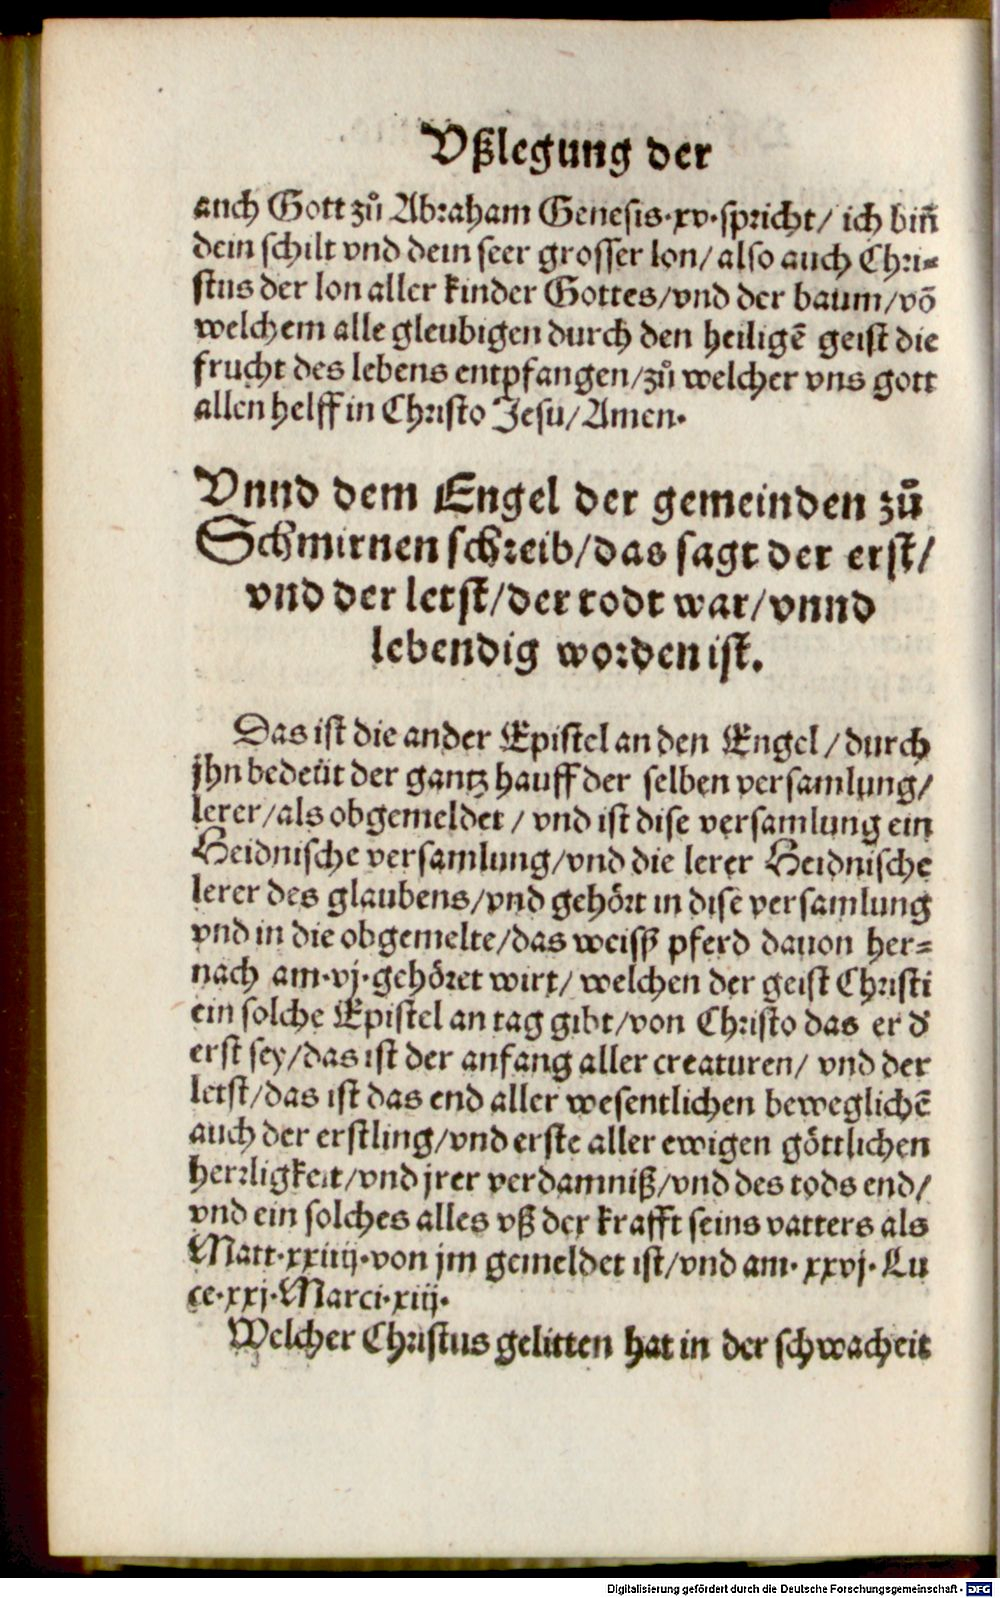 Vßlegung der
auch Gott zů Abraham Genesis·xv·spricht/ ich bin̄
dein schilt vnd dein seer grosser lon/ also auch Chri⸗
stus der lon aller kinder Gottes/vnd der baum/vō
welchem alle gleubigen durch den heiligē geist die
frucht des lebens entpfangen/zů welcher vns gott
allen helff in Christo Jesu/Amen.
Vnnd dem Engel der gemeinden zů
Schmirnen schreib/das sagt der erst/
vnd der letst/der todt war/vnnd
lebendig worden ist.
Das ist die ander Epistel an den Engel/durch
jhn bedeüt der gantz hauff der selben versamlung/
lerer/als obgemeldet / vnd ist dise versamlung ein
Heidnische versamlung/vnd die lerer Heidnische
lerer des glaubens/vnd gehört in dise versamlung
vnd in die obgemelte/das weisß pferd dauon her⸗
nach am·vj·gehöret wirt/ welchen der geist Christi
ein solche Epistel an tag gibt/von Christo das er d'
erst sey/das ist der anfang aller creaturen/ vnd der
letst/das ist das end aller wesentlichen beweglichē
auch der erstling/vnd erste aller ewigen göttlichen
herrligkeit/vnd jrer verdamniß/vnd des tods end/
vnd ein solches alles vß der krafft seins vatters als
Matt·xxiiij·von jm gemeldet ist/vnd am·xxvj·Lu
ce·xxj·Marci·xiij·
Welcher Christus gelitten hat in der schwacheit
Digitalisierung gefördert durch die Deutsche Forschungsgemeinschaft - DFG